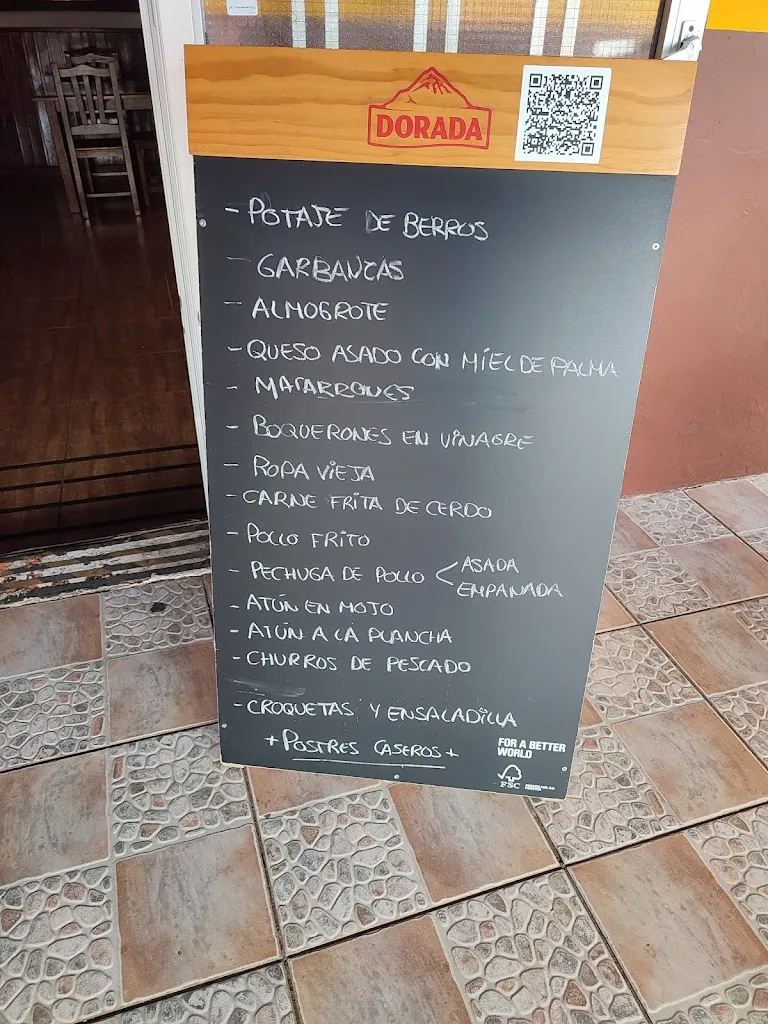 DORADA
- POTAJE DE BERROS
- GARBANZAS
- ALMOGROTE
- QUESO ASADO CON MIEL DE PALMA
- MATARRONES
- BOQUERONES EN VINAGRE
- ROPA VIEJA
- CARNE FRITA DE CERDO
- POLLO FRITO
- PECHUGA DE POLLO < ASADA
EMPANADA
- ATÚN EN MOJO
- ATÚN A LA PLANCHA
- CHURROS DE PESCADO
- CROQUETAS Y ENSALADILLA
+ POSTRES CASEROS +
FOR A BETTER
WORLD
FSC